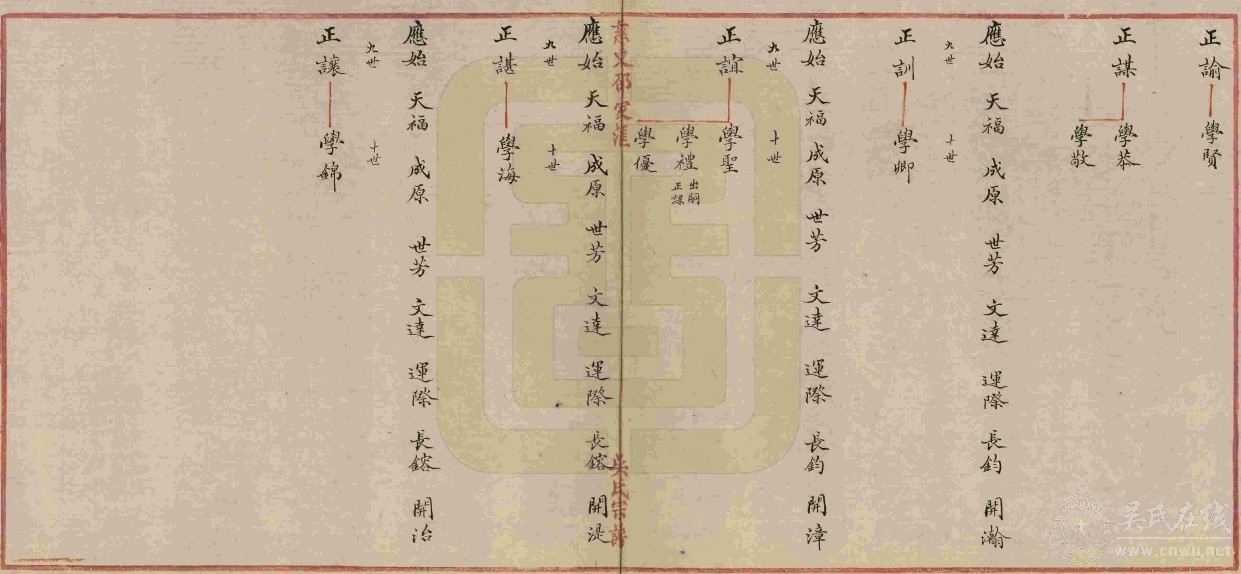 正諭
學賢
正謀
學恭
學敬
應始 天福 成原 世芳 文達 運際 長鈞 開瀚
九世
十世
正訓
學卿
應始 天福 成原 世芳 文達 運際 長鈞 開漳
九世
十世
正誼
學聖
學禮
出嗣
正謀
學優
吳氏宗譜
應始 天福 成原 世芳 文達 運際 長鎔 開湜
九世
十世
正諶
學海
應始 天福 成原 世芳 文達 運際 長鎔 開治
九世
十世
正讓
學錦
吴氏在线
www.cnwu.net